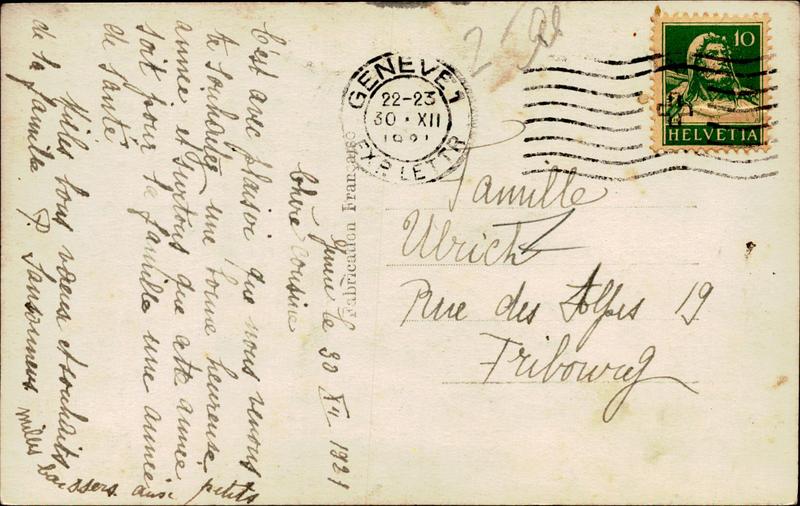 GENEVE 1
22-23
30·XII
1921
EXP. LETTR
10
HELVETIA
Famille
Ulrich
Rue des Alpes 19
Fribourg
Fabrication Française
le 30 XII 1921
Chère cousine
C'est avec plaisir que nous venons
te souhaiter une bonne heureuse
année et surtous que cete année
soit pour ta famille une année
de santé.
Milles bons vœux et souhaits
de la famille P.
milles baissers aux petits